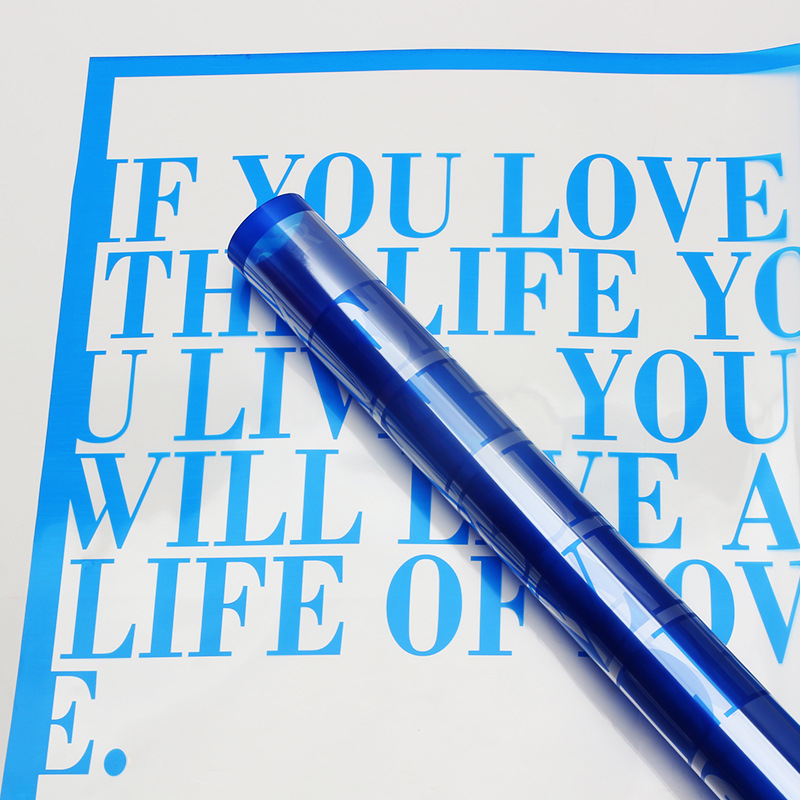 IF YOU LOVE
THE LIFE YO
U LIVE YOU
WILL LIVE A
LIFE OF LOV
E.